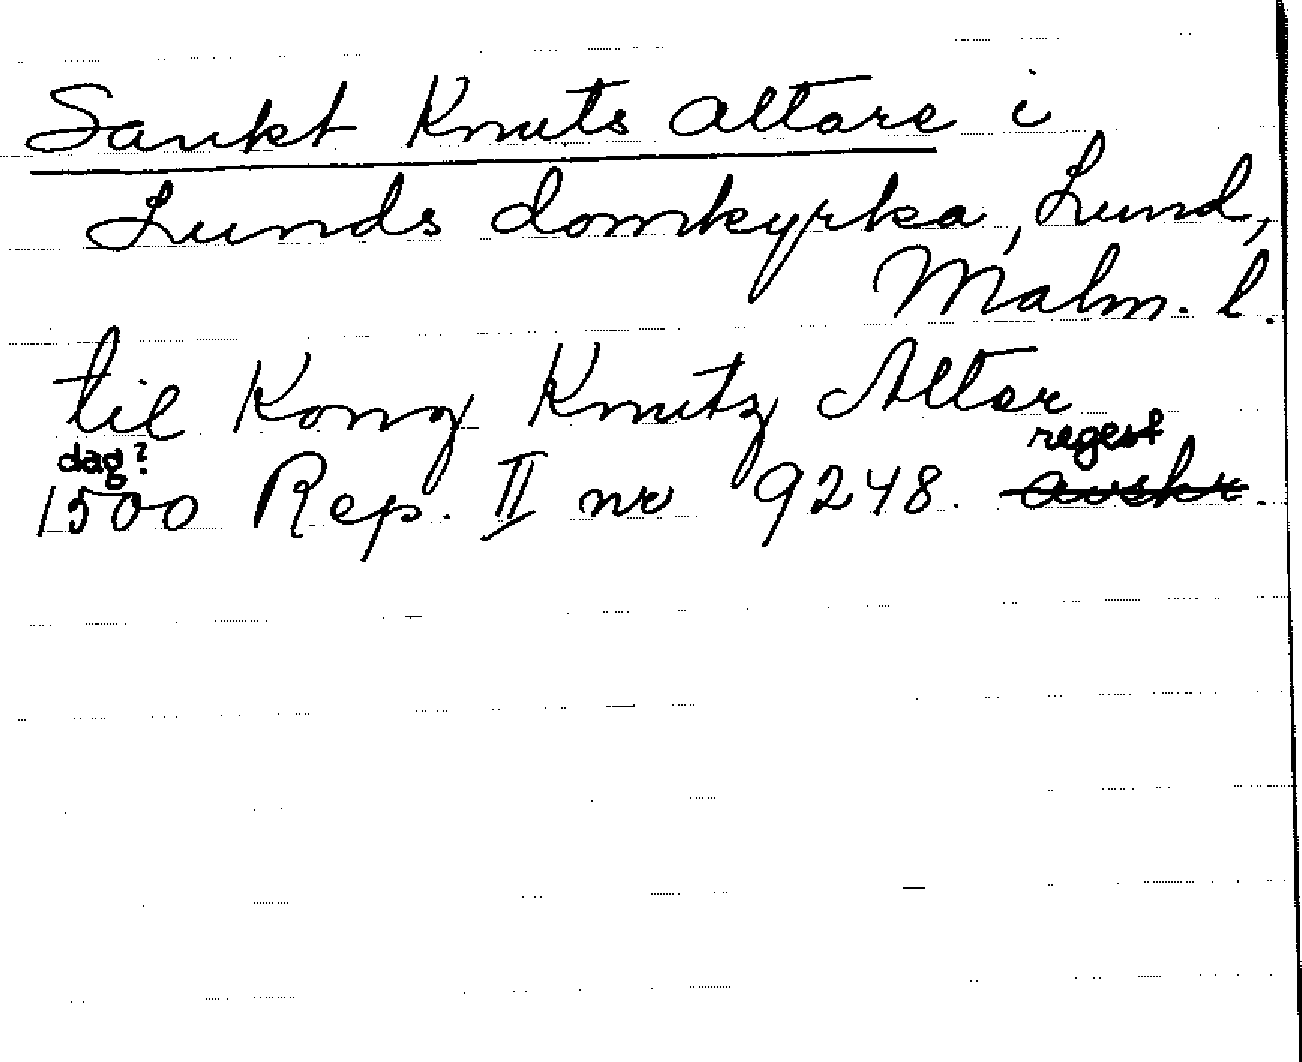 Sankt Knuts altare i
Lunds domkyrka, Lund,
Malm. l.
til Kong Knutz Altar
dag? regest
1500 Rep. II nr 9248. avskr.